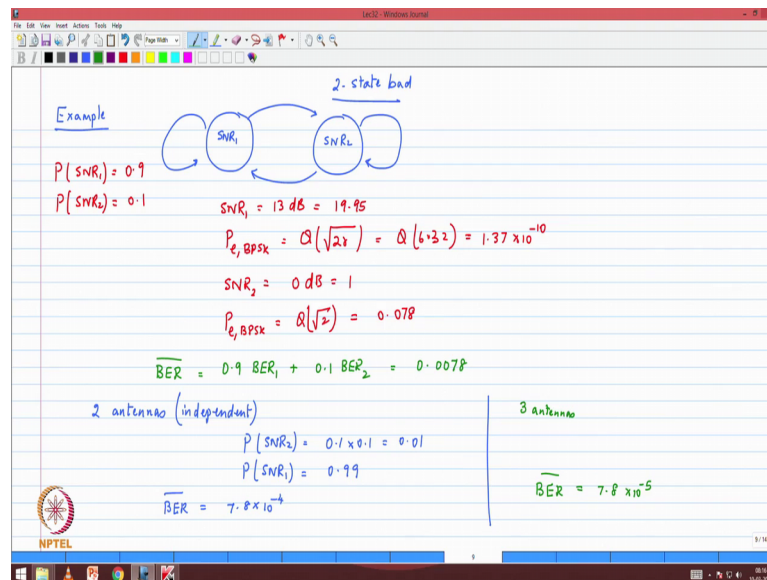 Lec32 - Windows Journal
File Edit View Insert Actions Tools Help
Page Width
2-state bad
Example
SNR₁
SNR₂
P(SNR₁) = 0.9
P(SNR₂) = 0.1
SNR₁ = 13 dB = 19.95
P_{e, BPSK} = Q(√2γ) = Q(6.32) = 1.37 × 10⁻¹⁰
SNR₂ = 0 dB = 1
P_{e, BPSK} = Q(√2) = 0.078
BER̅ = 0.9 BER₁ + 0.1 BER₂ = 0.0078
2 antennas (independent)
P(SNR₂) = 0.1 × 0.1 = 0.01
P(SNR₁) = 0.99
BER̅ = 7.8 × 10⁻⁴
3 antennas
BER̅ = 7.8 × 10⁻⁵
NPTEL
9/14
9